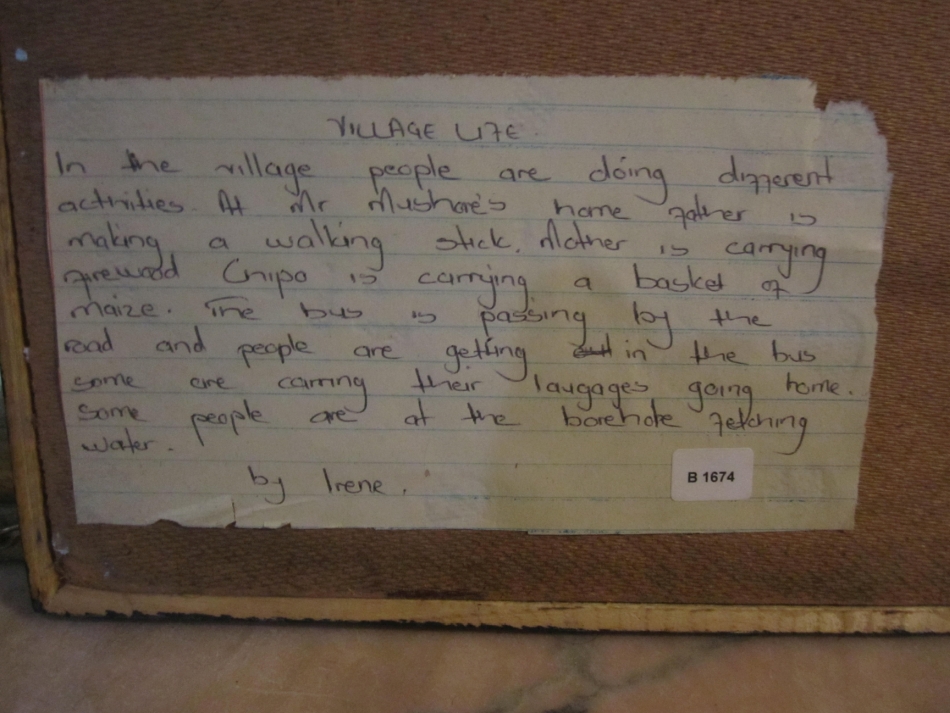 VILLAGE LIFE
In the village people are doing different
activities. At Mr Mushore's home father is
making a walking stick. Mother is carrying
firewood Chipo is carrying a basket of
maize. The bus is passing by the
road and people are getting in the bus
some are carring their laugages going home.
Some people are at the borehole fetching
water.
by Irene.
B 1674